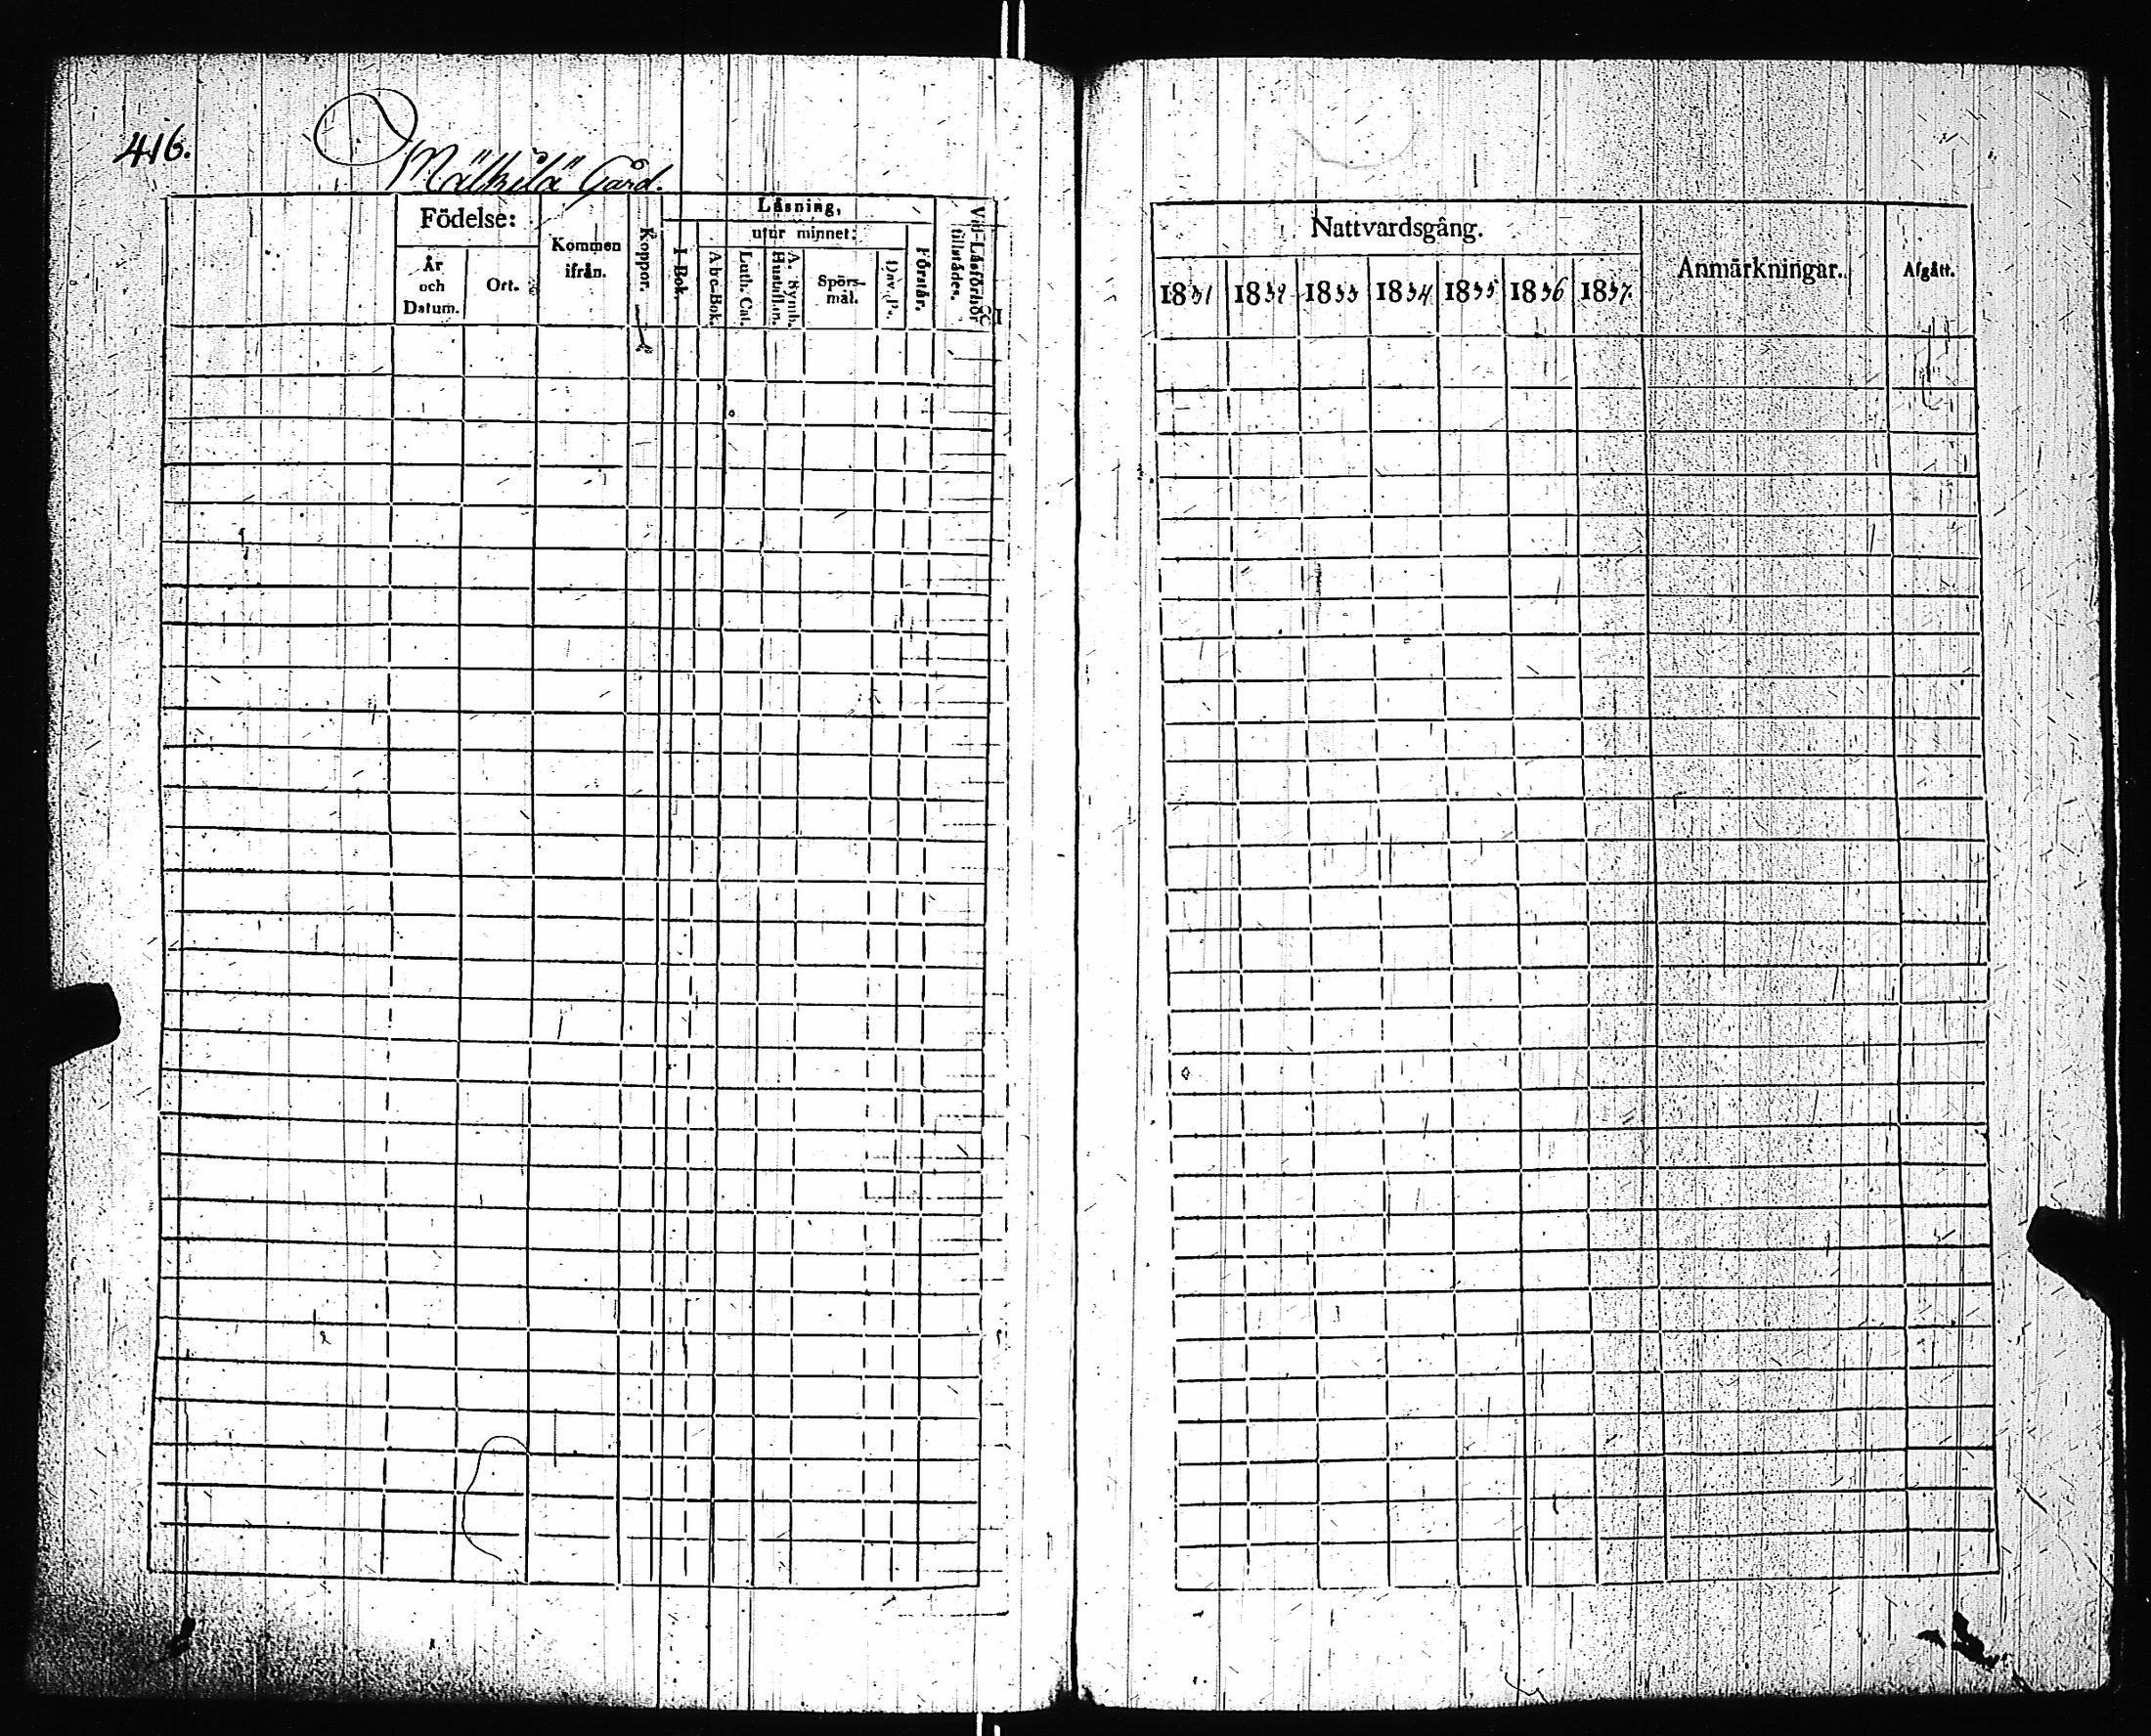 416.
Mälkilä Gård.
Födelse:
År och Datum.
Ort.
Kommen ifrån.
Koppor.
Låsning,
I Bok.
utur minnet:
Abc-Bok.
Luth. Cat.
A. Symb. Hustafl.
Spörs-mål.
Dav. Ps.
Förstår.
Vid Läsförhör tillstädes.
Nattvardsgång.
1831
1832
1833
1834
1835
1836
1837.
Anmärkningar.
Afgått.